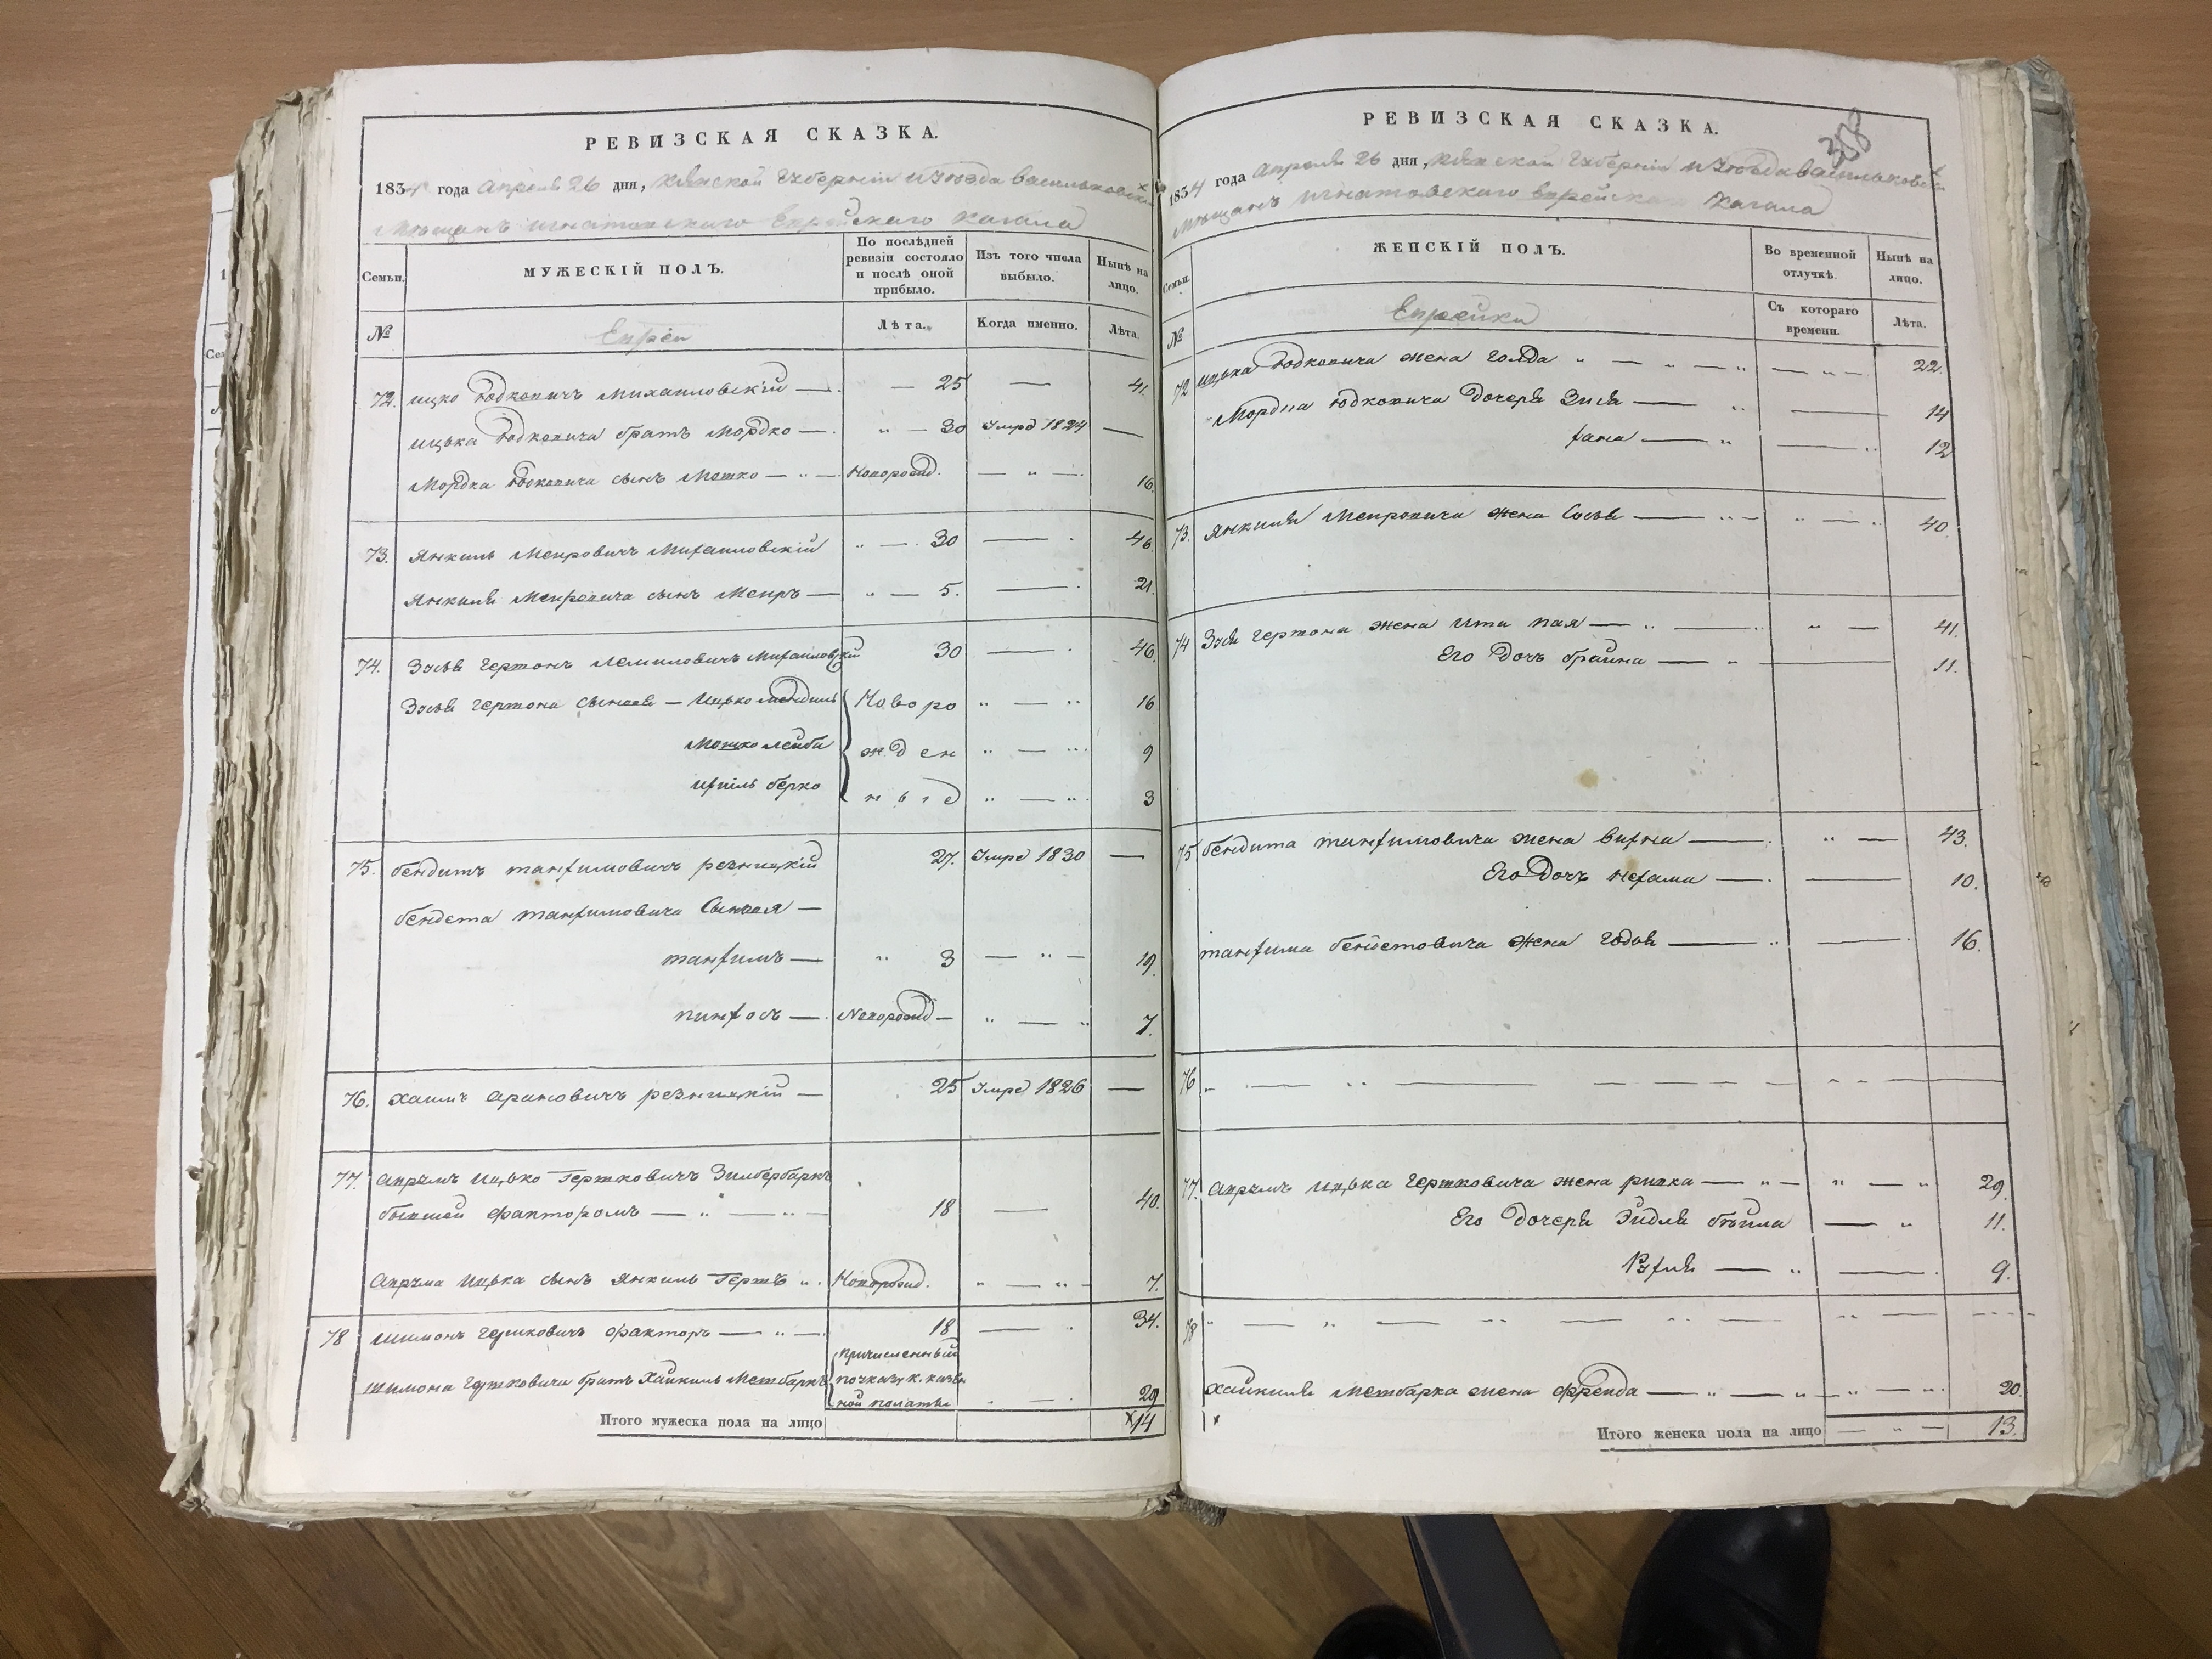 РЕВИЗСКАЯ СКАЗКА.
1834 года Апреля 26 дня, Кіевской Губерніи и Уезда Васильковск
Мещанъ Игнатовского Еврейского Кагала
Семьи.
МУЖЕСКІЙ ПОЛЪ.
По послѣдней ревизіи состояло и послѣ оной прибыло.
Изъ того числа выбыло.
Нынѣ на лицо.
№
Евреи
Лѣта.
Когда именно.
Лѣта.
72. ицко Юдковичъ Михайловскій — 25 — 41.
ицька Юдковича братъ Мордко — 30 Умре 1824 —
Мордка Юдковича сынъ Мошко — Новорожд. — 16.
73. Янкиль Меировичъ Михайловскій — 30 — 46.
Янкиля Меировича сынъ Меиръ — 5. — 21.
74. Зуся Гершонъ Михайловскій 30 — 46.
Зуся Гершона сыновя — Ицько Мендиль Новоро — 16
Мошко лейба жден — 9
берко ные — 3
75. бендитъ танхимовичъ резницкій 27. Умре 1830 —
бендета танхимовича Сыновя —
танхимъ — 3 — 19.
пинхосъ — Новорожд — 7.
76. Хаимъ Ароновичъ резницкій — 25 Умре 1826 —
77. Аврумъ Ицько Гершковичъ Зильбербаргъ
бывшей факторомъ — 18 — 40.
Аврума Ицька сынъ Янкиль Гершъ Новорожд. — 7.
78 Шимонъ Гершковичъ факторъ — 18 — 34.
Шимона Гершковича братъ Хайкиль причисленный по указу к. казенной полаты 29
Итого мужеска пола на лицо 14
РЕВИЗСКАЯ СКАЗКА.
1834 года Апреля 26 дня, Кіевской Губерніи и Уезда Васильковск
Мещанъ Игнатовского Еврейского Кагала
Семьи.
ЖЕНСКІЙ ПОЛЪ.
Во временной отлучкѣ.
Нынѣ на лицо.
№
Еврейки
Съ котораго времени.
Лѣта.
72 ицька Юдковича жена Голда — 22.
Мордка Юдковича дочеря Зися — 14
хана — 12
73. Янкиля Меировича жена Сося — 40.
74 Зуся Гершона жена Ита — 41.
Его дочь брайна — 11.
75 бендита танхимовича жена — 43.
Его дочь нехама — 10.
танхима бендетовича жена Годя — 16.
76
77. Аврумъ Ицька Гершковича жена ривка — 29.
Его дочеря Эйдля бейла — 11.
Рухля — 9.
78
Хайкиля жена фрейда — 20.
Итого женска пола на лицо — 13.